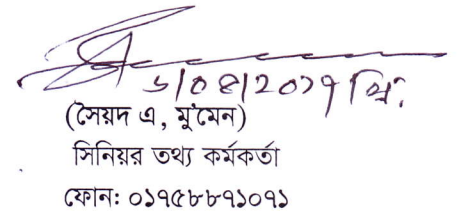 ৬/০৪/২০১৭ খ্রি:
(সৈয়দ এ, মু'মেন)
সিনিয়র তথ্য কর্মকর্তা
ফোন: ০১৭৫৮৮৭১০৭১